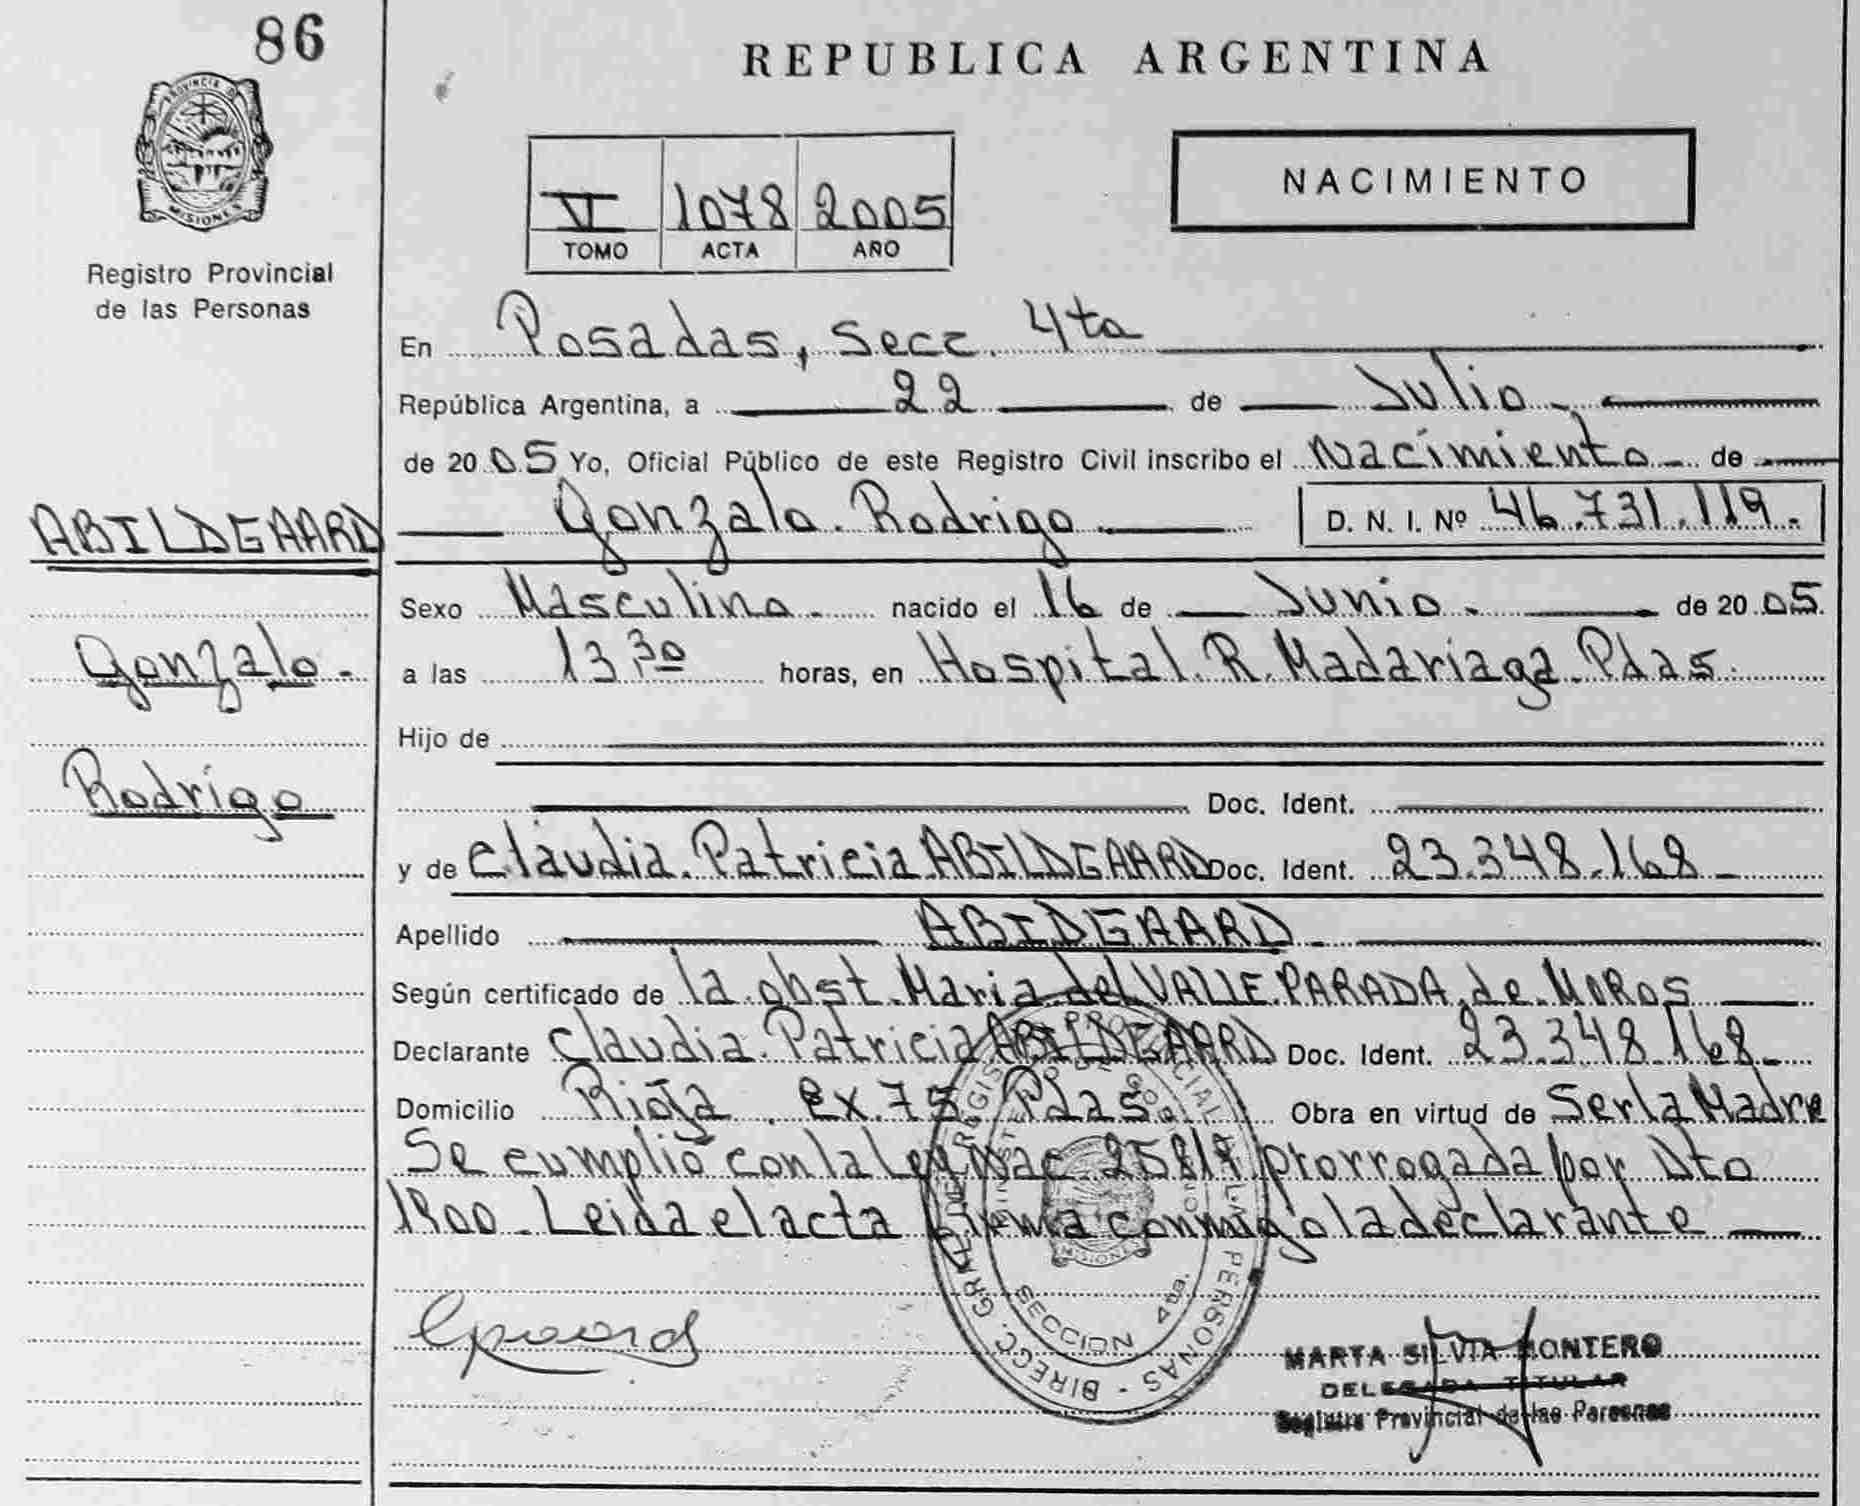 86
REPUBLICA ARGENTINA
PROVINCIA D
MISIONES
Registro Provincial
de las Personas
NACIMIENTO
V 1078 2005
TOMO ACTA AÑO
En Posadas, Secc. 4ta
República Argentina, a 22 de Julio.
de 2005 Yo, Oficial Público de este Registro Civil inscribo el Nacimiento de
ABILDGAARD
Gonzalo Rodrigo D. N. I. Nº 46.731.119.
Sexo Masculino. nacido el 16 de Junio. de 2005
Gonzalo.
a las 13 30 horas, en Hospital R. Madariaga Pdas.
Hijo de
Rodrigo
Doc. Ident.
y de Claudia Patricia ABILDGAARD Doc. Ident. 23.348.168
Apellido ABIDGAARD
Según certificado de la obst. Maria del VALLE PARADA de MOROS
Declarante Claudia Patricia ABILDGAARD Doc. Ident. 23.348.168
Domicilio Rioja ex. 75 Pdas. Obra en virtud de Ser la Madre
Se cumplió con la Ley Nac 25819 prorrogada por Dto
1900. Leida el acta firma conmigo la declarante
SECCION 4ta.
MISIONES
MARTA SILVIA MONTERO
DELEGADA TITULAR
Registro Provincial de las Personas